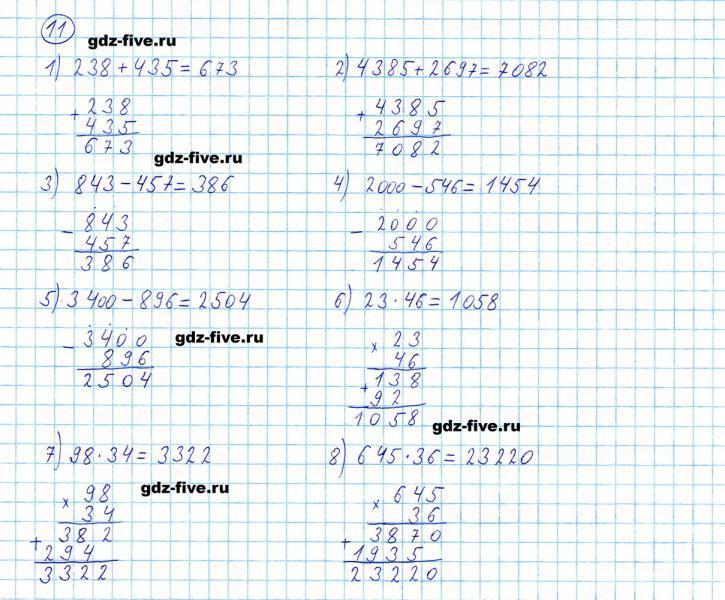 11
gdz-five.ru
1) 238 + 435 = 673
+ 238
435
673
2) 4385 + 2697 = 7082
+ 4385
2697
7082
gdz-five.ru
3) 843 - 457 = 386
- 843
457
386
4) 2000 - 546 = 1454
- 2000
546
1454
5) 3400 - 896 = 2504
- 3400
896
2504
gdz-five.ru
6) 23 · 46 = 1058
× 23
46
+ 138
92
1058
gdz-five.ru
7) 98 · 34 = 3322
gdz-five.ru
× 98
34
+ 382
294
3322
8) 645 · 36 = 23220
× 645
36
+ 3870
1935
23220